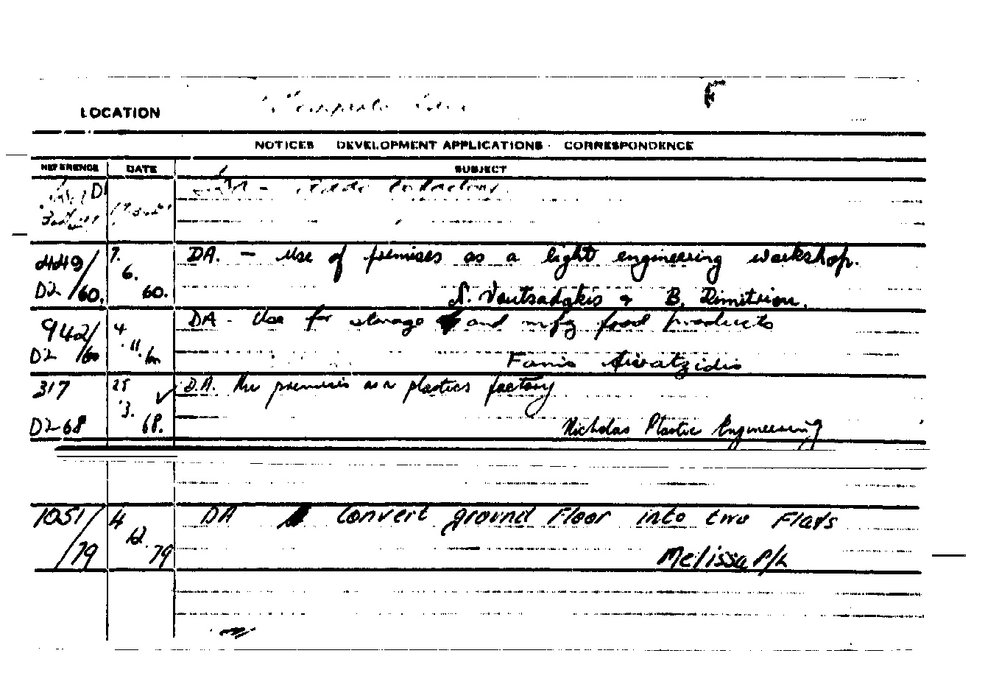 LOCATION
NOTICES DEVELOPMENT APPLICATIONS · CORRESPONDENCE
REFERENCE DATE SUBJECT
449/ 7. DA. - Use of premises as a light engineering workshop.
D2 /60. 6. 60. B. Dimitriou.
942/ 4 DA - Use for storage and mfg food products
D2 /60 11. 60 Fanis
317 25 ✓ D.A. Use premises as a plastics factory
D2 68 3. 68. Nicholas Plastic Engineering
1051/ 4 DA Convert ground Floor into two Flats
/79 12. 79 Melissa P/L